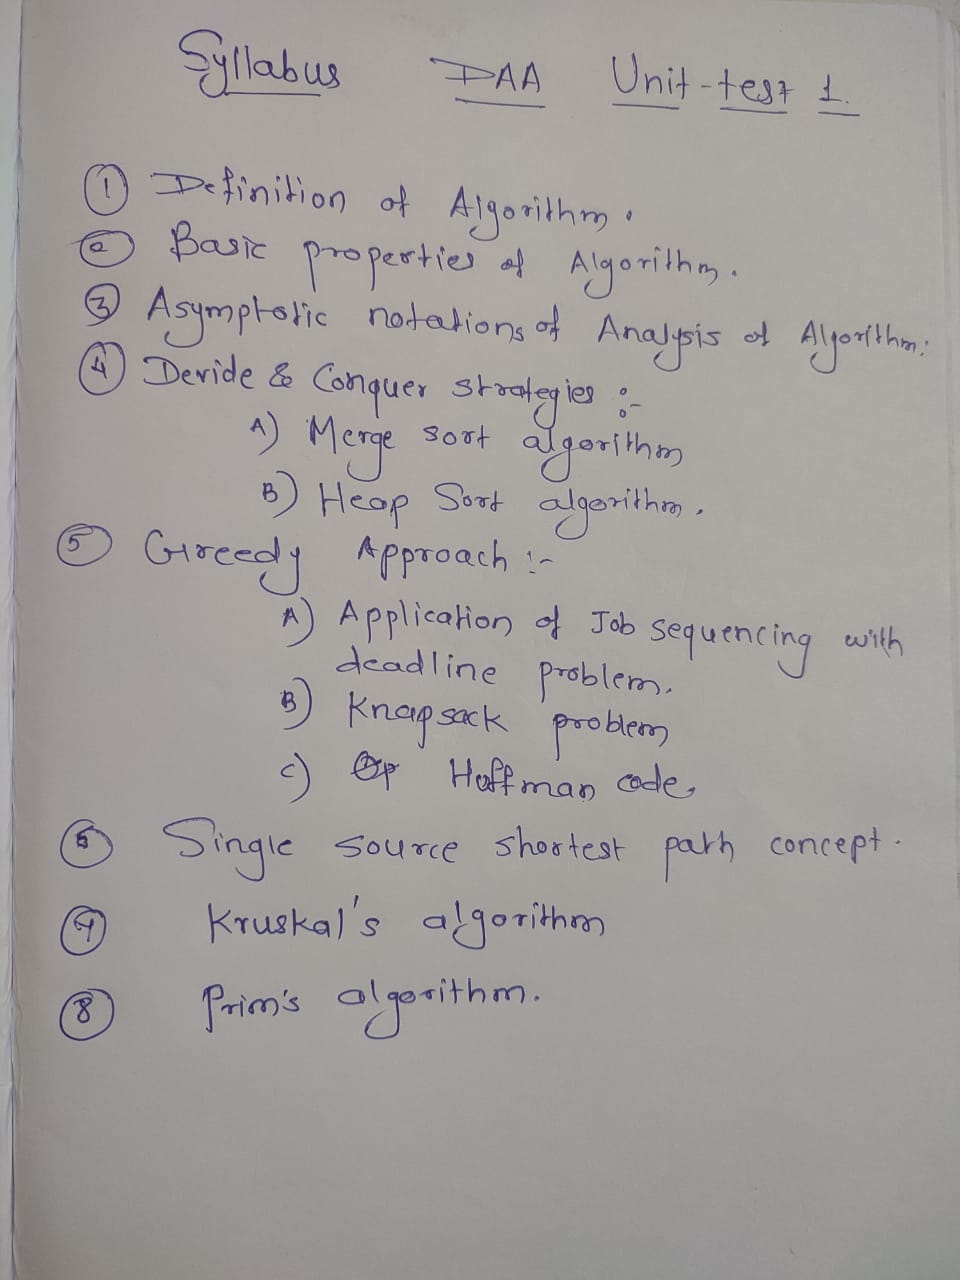 Syllabus DAA Unit-test 1.
① Definition of Algorithm.
② Basic properties of Algorithm.
③ Asymptotic notations of Analysis of Algorithm:
④ Devide & Conquer strategies :-
A) Merge sort algorithm
B) Heap Sort algorithm.
⑤ Greedy Approach :-
A) Application of Job sequencing with
deadline problem.
B) Knapsack problem
C) Huffman code,
⑥ Single source shortest path concept.
⑦ Kruskal's algorithm
⑧ Prim's algorithm.